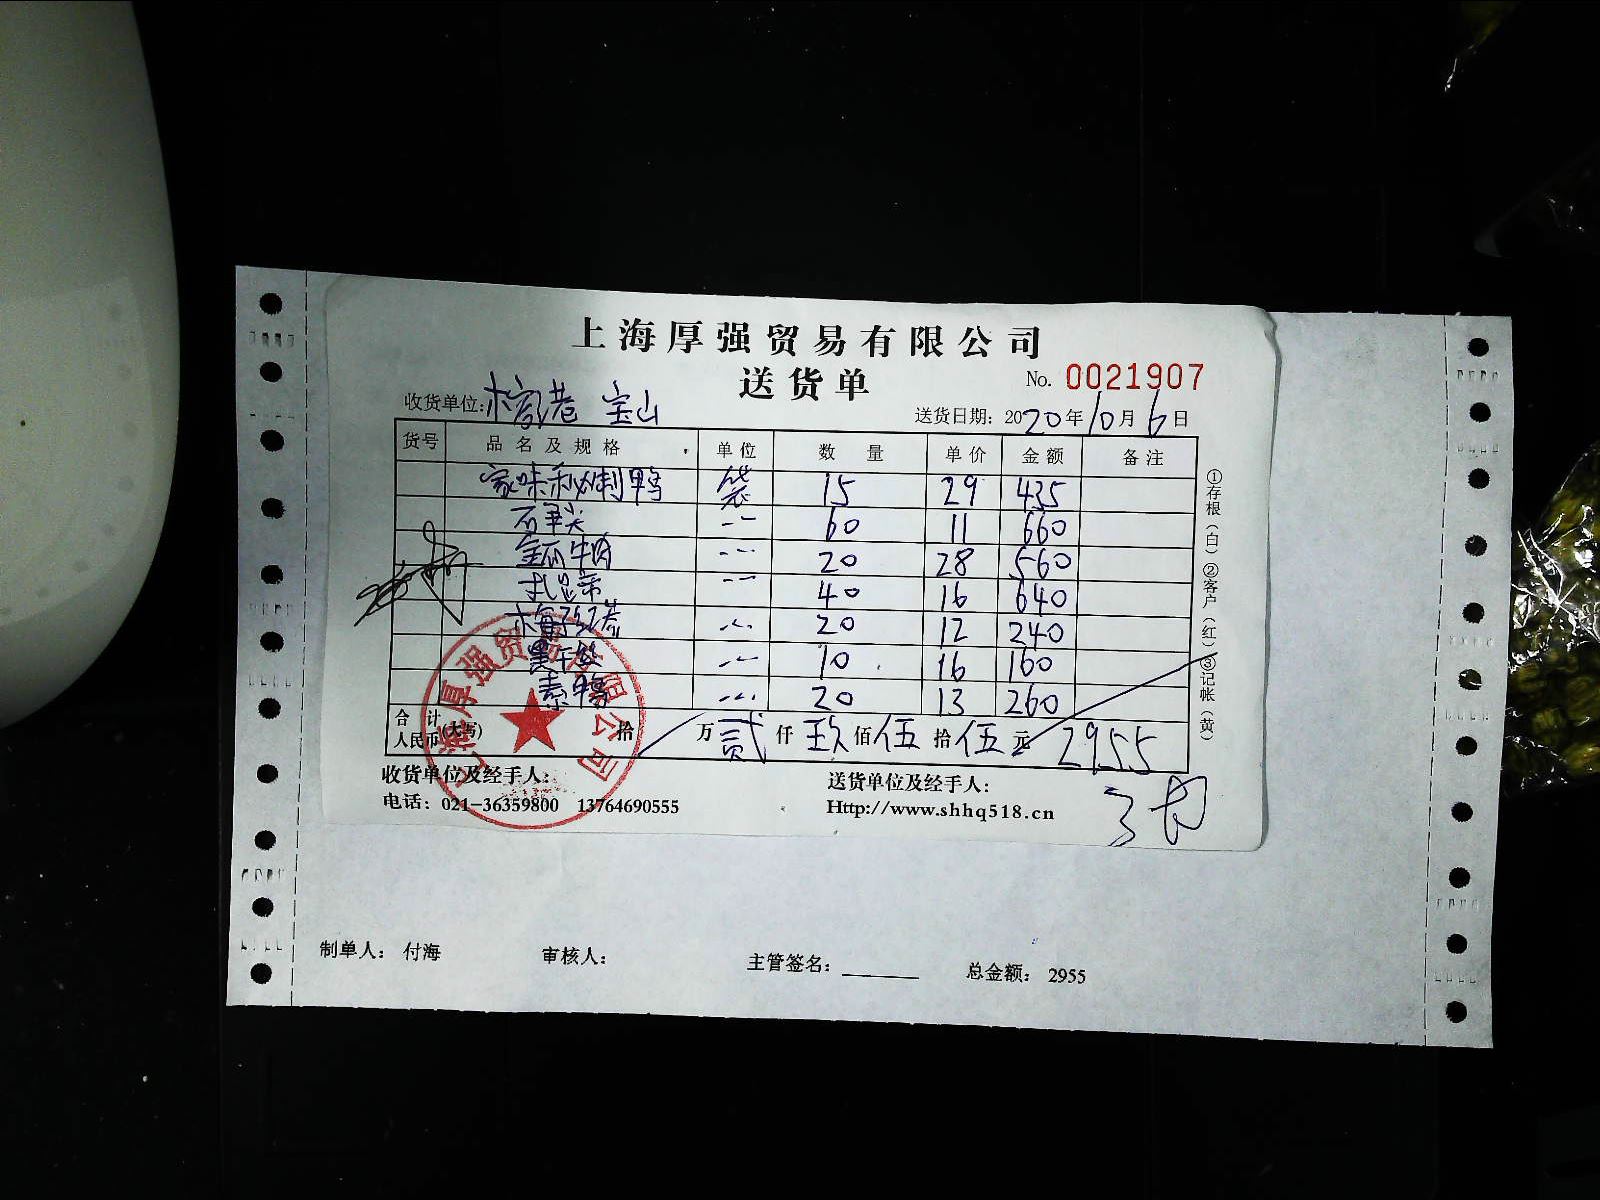 上海厚强贸易有限公司
送货单
No. 0021907
收货单位: 宝山
送货日期: 2020年10月6日
货号 品名及规格 单位 数量 单价 金额 备注
袋 15 29 435
60 11 660
牛肉 20 28 560
40 16 640
20 12 240
10 16 160
素鸭 20 13 260
合计
人民币(大写) 拾 万 贰 仟 玖 佰 伍 拾 伍 元 2955
收货单位及经手人:
送货单位及经手人:
电话: 021-36359800 13764690555
Http://www.shhq518.cn
①存根(白)②客户(红)③记帐(黄)
制单人: 付海 审核人: 主管签名: 总金额: 2955